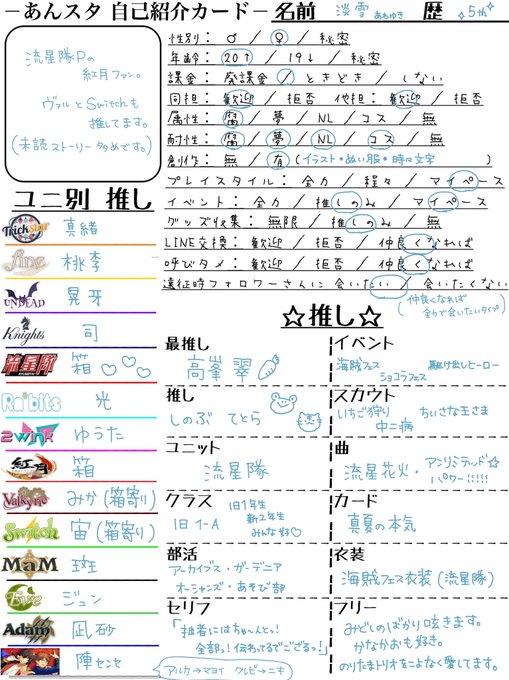 －あんスタ 自己紹介カード－ 名前 淡雪 あわゆき 歴 5th
流星隊Pの
紅月ファン。
ヴァルとSwitchも
推してます。
(未読ストーリー多めです。)
性別： ♂ / ♀ / 秘密
年齢： 20↑ / 19↓ / 秘密
課金： 廃課金 / ときどき / しない
同担： 歓迎 / 拒否 他担： 歓迎 / 拒否
属性： 腐 / 夢 / NL / コス / 無
耐性： 腐 / 夢 / NL / コス / 無
創作： 無 / 有 (イラスト・ぬい服・時々文字 )
プレイスタイル： 全力 / 程々 / マイペース
イベント： 全力 / 推しのみ / マイペース
グッズ収集： 無限 / 推しのみ / 無
LINE交換： 歓迎 / 拒否 / 仲良くなれば
呼びタメ： 歓迎 / 拒否 / 仲良くなれば
遠征時フォロワーさんに 会いたい / 会いたくない
(仲良くなれば
全力で会いたいタイプ)
ユニ別 推し
TrickStar 真緒
fine 桃李
UNDEAD 晃牙
Knights 司
流星隊 箱 ♡♡♡
Ra*bits 光
2wink ゆうた
紅月 箱
Valkyrie みか(箱寄り)
Switch 宙(箱寄り)
MaM 斑
Eve ジュン
Adam 凪砂
陣センセ
アルカ→マヨイ クレビ→ニキ
☆推し☆
最推し
高峯 翠
イベント
海賊フェス 駆け出しヒーロー
ショコラフェス
推し
しのぶ てとら
スカウト
いちご狩り ちいさな王さま
中二病
ユニット
流星隊
曲
流星花火・アンリミテッド☆
パワー!!!!!
クラス
旧1-A
旧1年生
新2年生
みんな好♡
カード
真夏の本気
部活
アーカイブス・ガーデニア
オーシャンズ・あそび部
衣装
海賊フェス衣装(流星隊)
セリフ
「拙者にはちゃ～んとっ!
全部っ!伝わってるでござるっ!」
フリー
みどしのばかり呟きます。
かなかおも好き。
のりたまトリオをこよなく愛してます。